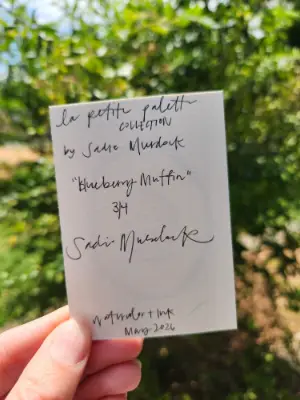 la petite palette
COLLECTION
by Sadie Murdock
"Blueberry Muffin"
3/4
Sadie Murdock
Watercolor + Ink
May 2026